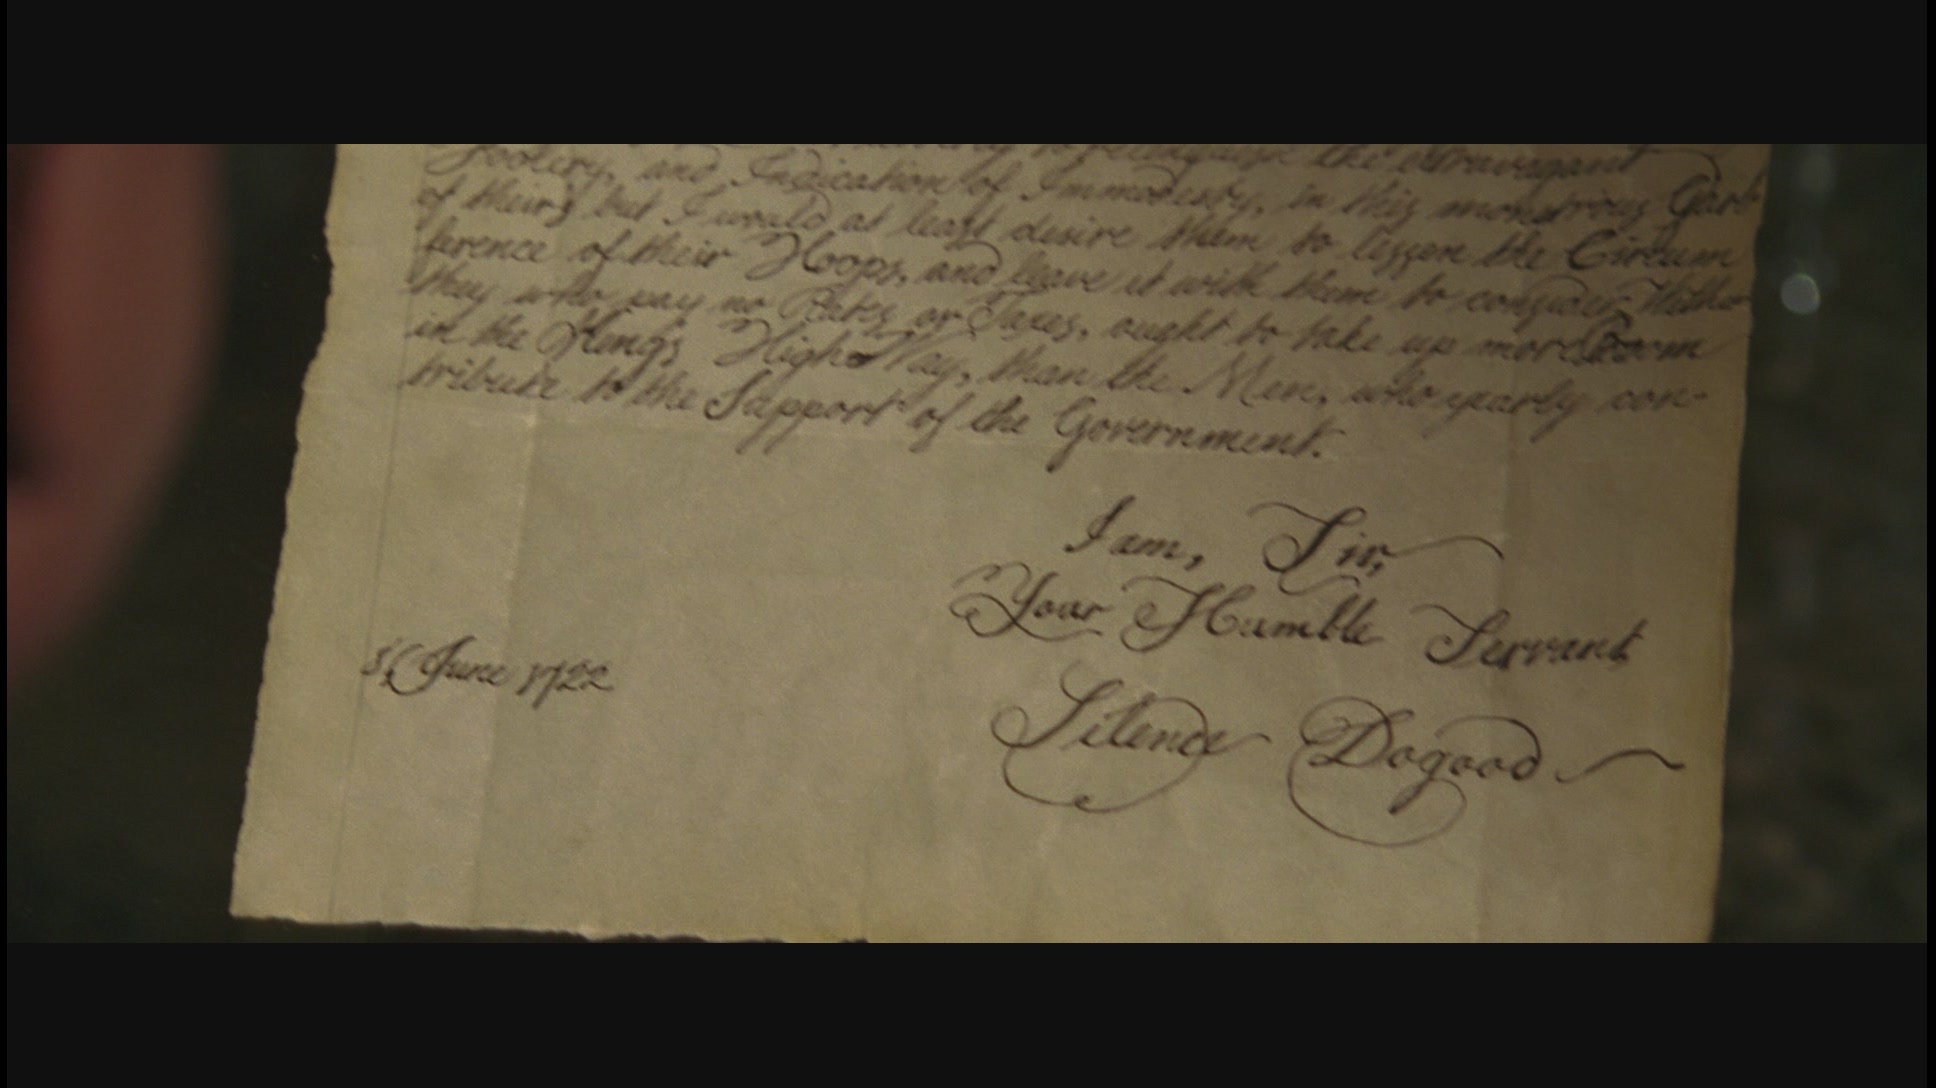 to relinquish the extravagant
Foolery, and Indication of Immodesty, in this monstrous Garb
of theirs but I would at least desire them to lessen the Circum
ference of their Hoops, and leave it with them to consider, Wether
they who pay no Rates or Taxes, ought to take up more Room
in the King's High Way, than the Men, who yearly con-
tribute to the Support of the Government.
I am, Sir,
Your Humble Servant
Silence Dogood
June 1722